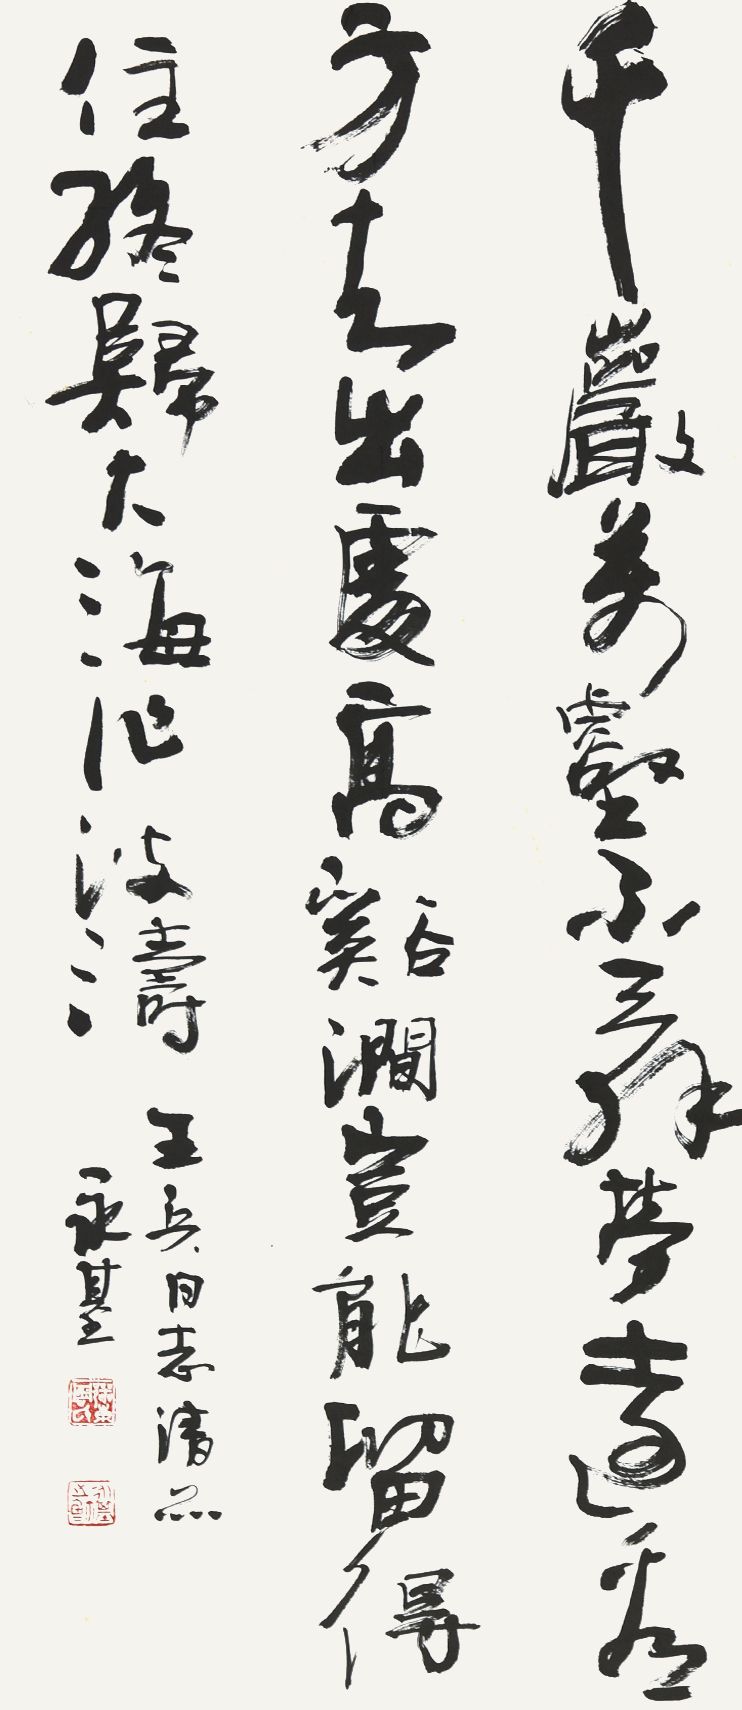 千巖萬壑不辭勞遠看
方知出處高谿澗豈能留得
住終歸大海作波濤
王兵同志清品
永基